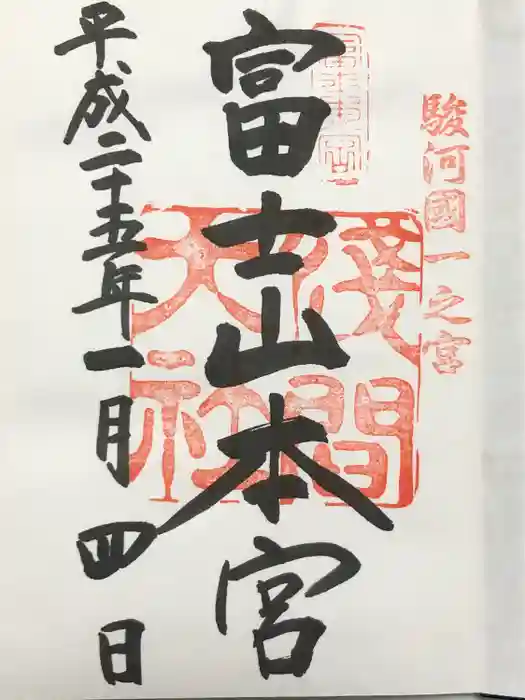 駿河國一之宮
富士山本宮
淺間大社
平成二十五年一月四日